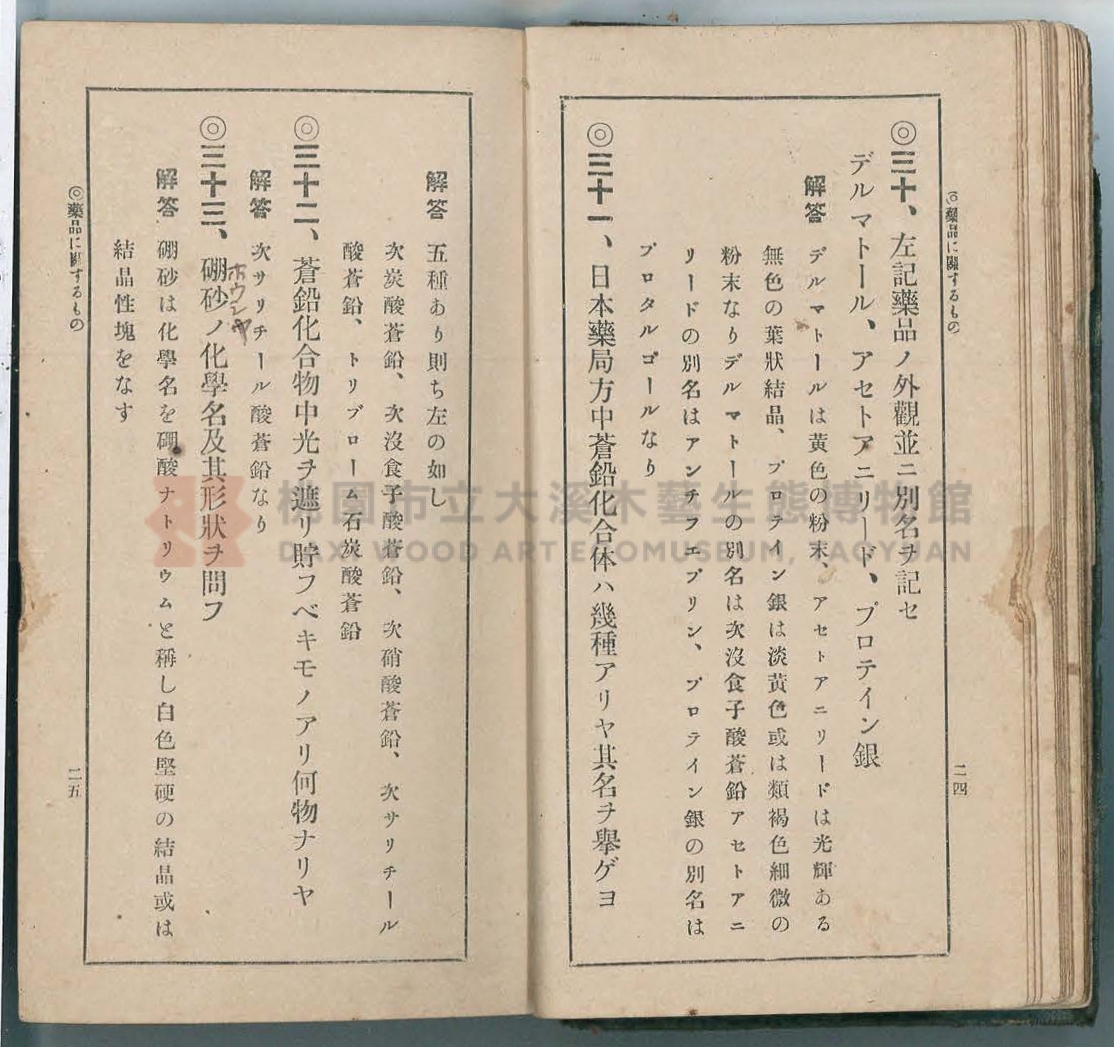 ◎藥品に關するもの
二四
◎三十、左記藥品ノ外觀並ニ別名ヲ記セ
デルマトール、アセトアニリード、プロテイン銀
解答 デルマトールは黄色の粉末、アセトアニリードは光輝ある
無色の葉狀結晶、プロテイン銀は淡黄色或は類褐色細微の
粉末なりデルマトールの別名は次沒食子酸蒼鉛アセトアニ
リードの別名はアンチフエブリン、プロテイン銀の別名は
プロタルゴールなり
◎三十一、日本藥局方中蒼鉛化合体ハ幾種アリヤ其名ヲ擧ゲヨ
解答 五種あり則ち左の如し
次炭酸蒼鉛、次沒食子酸蒼鉛、次硝酸蒼鉛、次サリチール
酸蒼鉛、トリブローム石炭酸蒼鉛
◎三十二、蒼鉛化合物中光ヲ遮リ貯フベキモノアリ何物ナリヤ
解答 次サリチール酸蒼鉛なり
◎三十三、硼砂ノ化學名及其形狀ヲ問フ
ホウシヤ
解答 硼砂は化學名を硼酸ナトリウムと稱し白色堅硬の結晶或は
結晶性塊をなす
◎藥品に關するもの
二五
桃園市立大溪木藝生態博物館
DAXI WOOD ART ECOMUSEUM, TAOYUAN